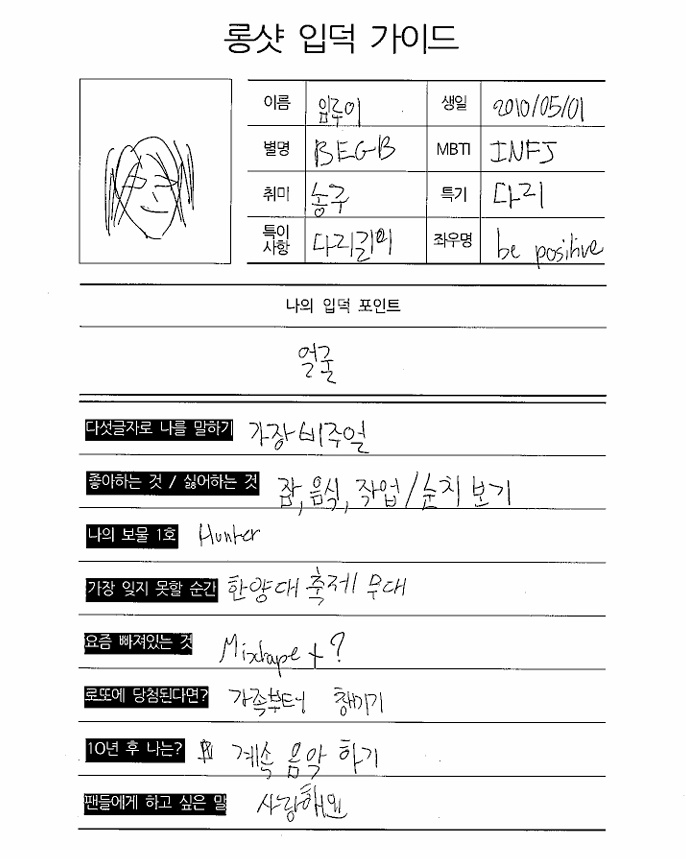 롱샷 입덕 가이드
이름 임루이 생일 2010/05/01
별명 BEGB MBTI INFJ
취미 농구 특기 다리
특이사항 다리길이 좌우명 be positive
나의 입덕 포인트
얼굴
다섯글자로 나를 말하기 가장비주얼
좋아하는 것 / 싫어하는 것 잠, 음식, 작업 / 눈치 보기
나의 보물 1호 Hunter
가장 잊지 못할 순간 한양대 축제 무대
요즘 빠져있는 것 Mixtape + ?
로또에 당첨된다면? 가족부터 챙기기
10년 후 나는? 계속 음악 하기
팬들에게 하고 싶은 말 사랑해요